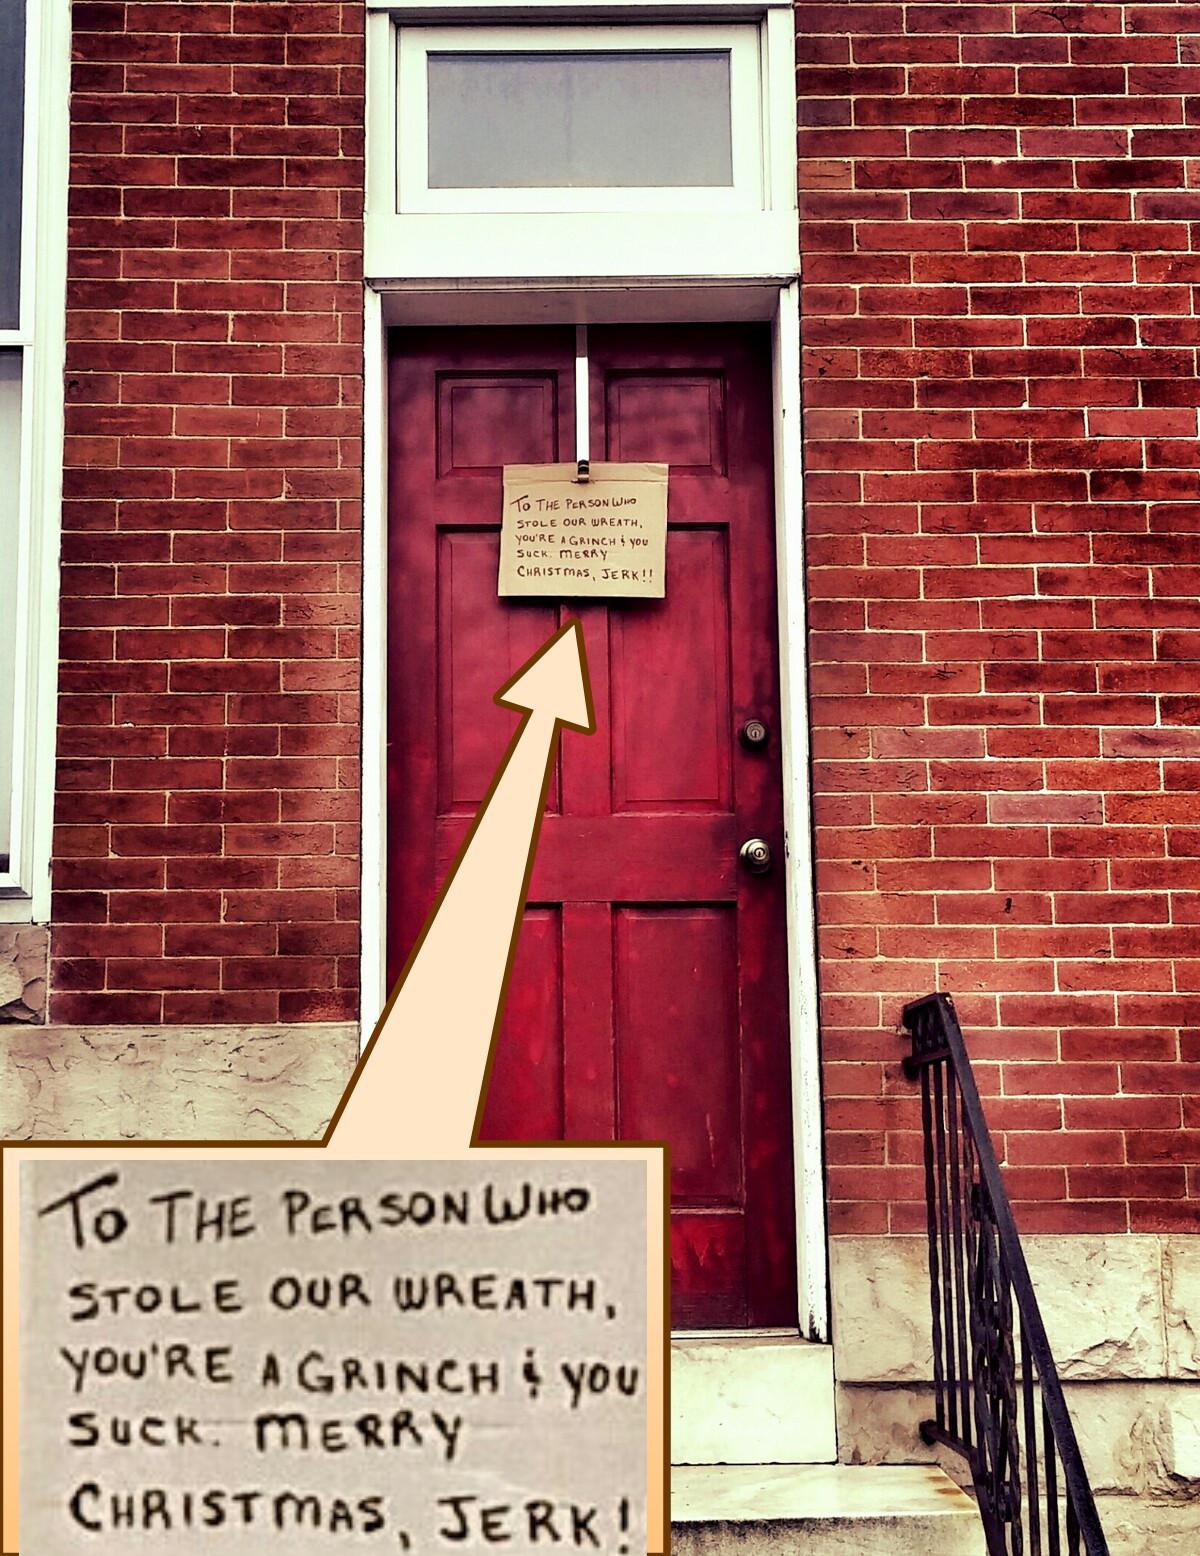 TO THE PERSON WHO
STOLE OUR WREATH,
YOU'RE A GRINCH & YOU
SUCK. MERRY
CHRISTMAS, JERK!!
TO THE PERSON WHO
STOLE OUR WREATH,
YOU'RE A GRINCH & YOU
SUCK. MERRY
CHRISTMAS, JERK!